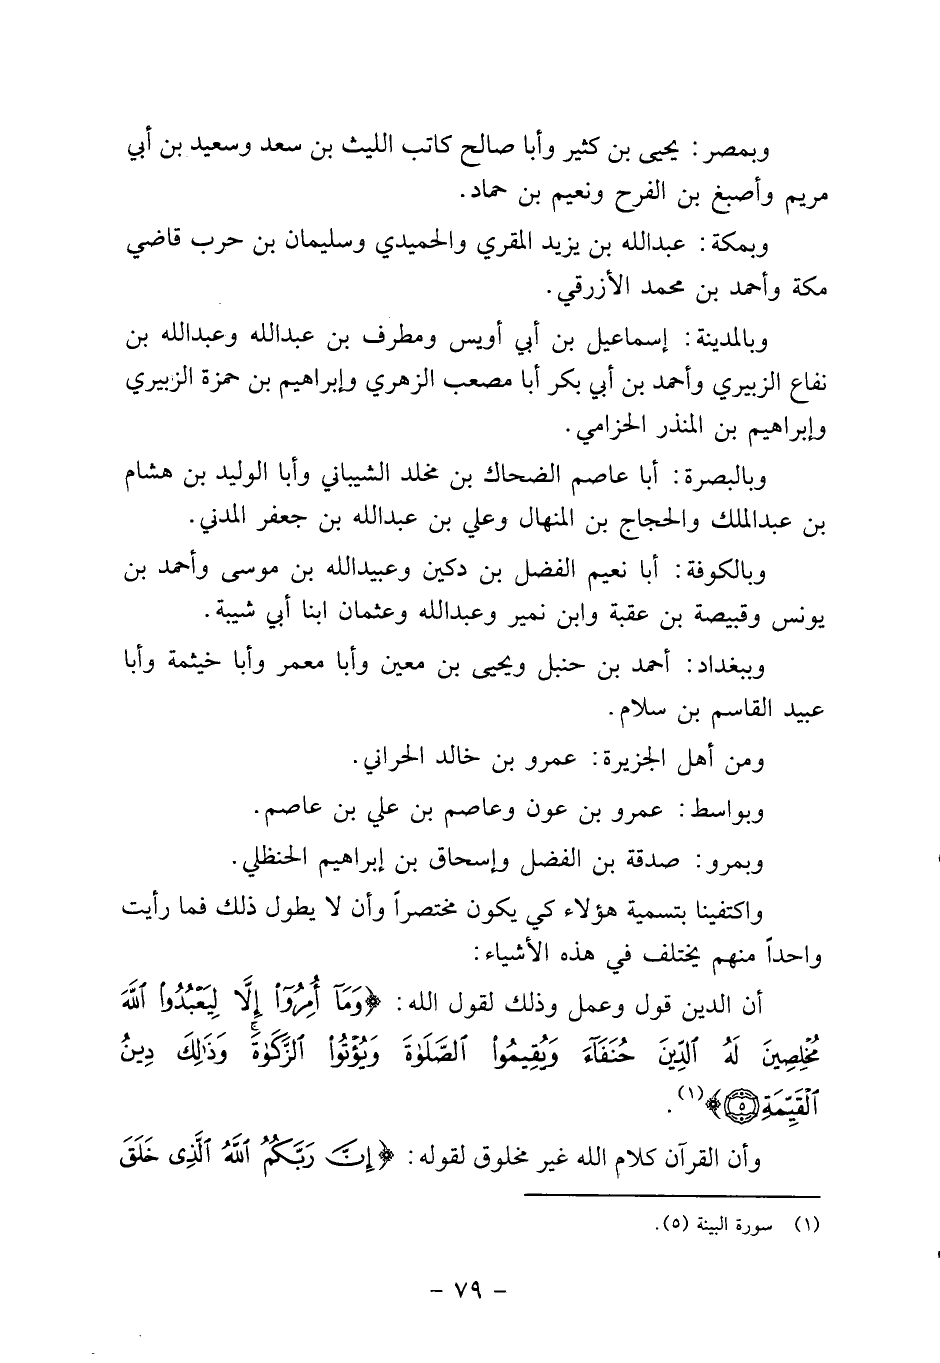 وبمصر: يحيى بن كثير وأبا صالح كاتب الليث بن سعد وسعيد بن أبي
مريم وأصبغ بن الفرح ونعيم بن حماد.
وبمكة: عبدالله بن يزيد المقري والحميدي وسليمان بن حرب قاضي
مكة وأحمد بن محمد الأزرقي.
وبالمدينة: إسماعيل بن أبي أويس ومطرف بن عبدالله وعبدالله بن
نفاع الزبيري وأحمد بن أبي بكر أبا مصعب الزهري وإبراهيم بن حمزة الزبيري
وإبراهيم بن المنذر الحزامي.
وبالبصرة: أبا عاصم الضحاك بن مخلد الشيباني وأبا الوليد بن هشام
بن عبدالملك والحجاج بن المنهال وعلي بن عبدالله بن جعفر المدني.
وبالكوفة: أبا نعيم الفضل بن دكين وعبيدالله بن موسى وأحمد بن
يونس وقبيصة بن عقبة وابن نمير وعبدالله وعثمان ابنا أبي شيبة.
وببغداد: أحمد بن حنبل ويحيى بن معين وأبا معمر وأبا خيثمة وأبا
عبيد القاسم بن سلام.
ومن أهل الجزيرة: عمرو بن خالد الحراني.
وبواسط: عمرو بن عون وعاصم بن علي بن عاصم.
وبمرو: صدقة بن الفضل وإسحاق بن إبراهيم الحنظلي.
واكتفينا بتسمية هؤلاء كي يكون مختصراً وأن لا يطول ذلك فما رأيت
واحداً منهم يختلف في هذه الأشياء:
أن الدين قول وعمل وذلك لقول الله: ﴿وَمَآ أُمِرُوٓا۟ إِلَّا لِيَعْبُدُوا۟ ٱللَّهَ
مُخْلِصِينَ لَهُ ٱلدِّينَ حُنَفَآءَ وَيُقِيمُوا۟ ٱلصَّلَوٰةَ وَيُؤْتُوا۟ ٱلزَّكَوٰةَ ۚ وَذَٰلِكَ دِينُ
ٱلْقَيِّمَةِ ٥﴾(١).
وأن القرآن كلام الله غير مخلوق لقوله: ﴿إِنَّ رَبَّكُمُ ٱللَّهُ ٱلَّذِى خَلَقَ
(١) سورة البينة (٥).
- ٧٩ -